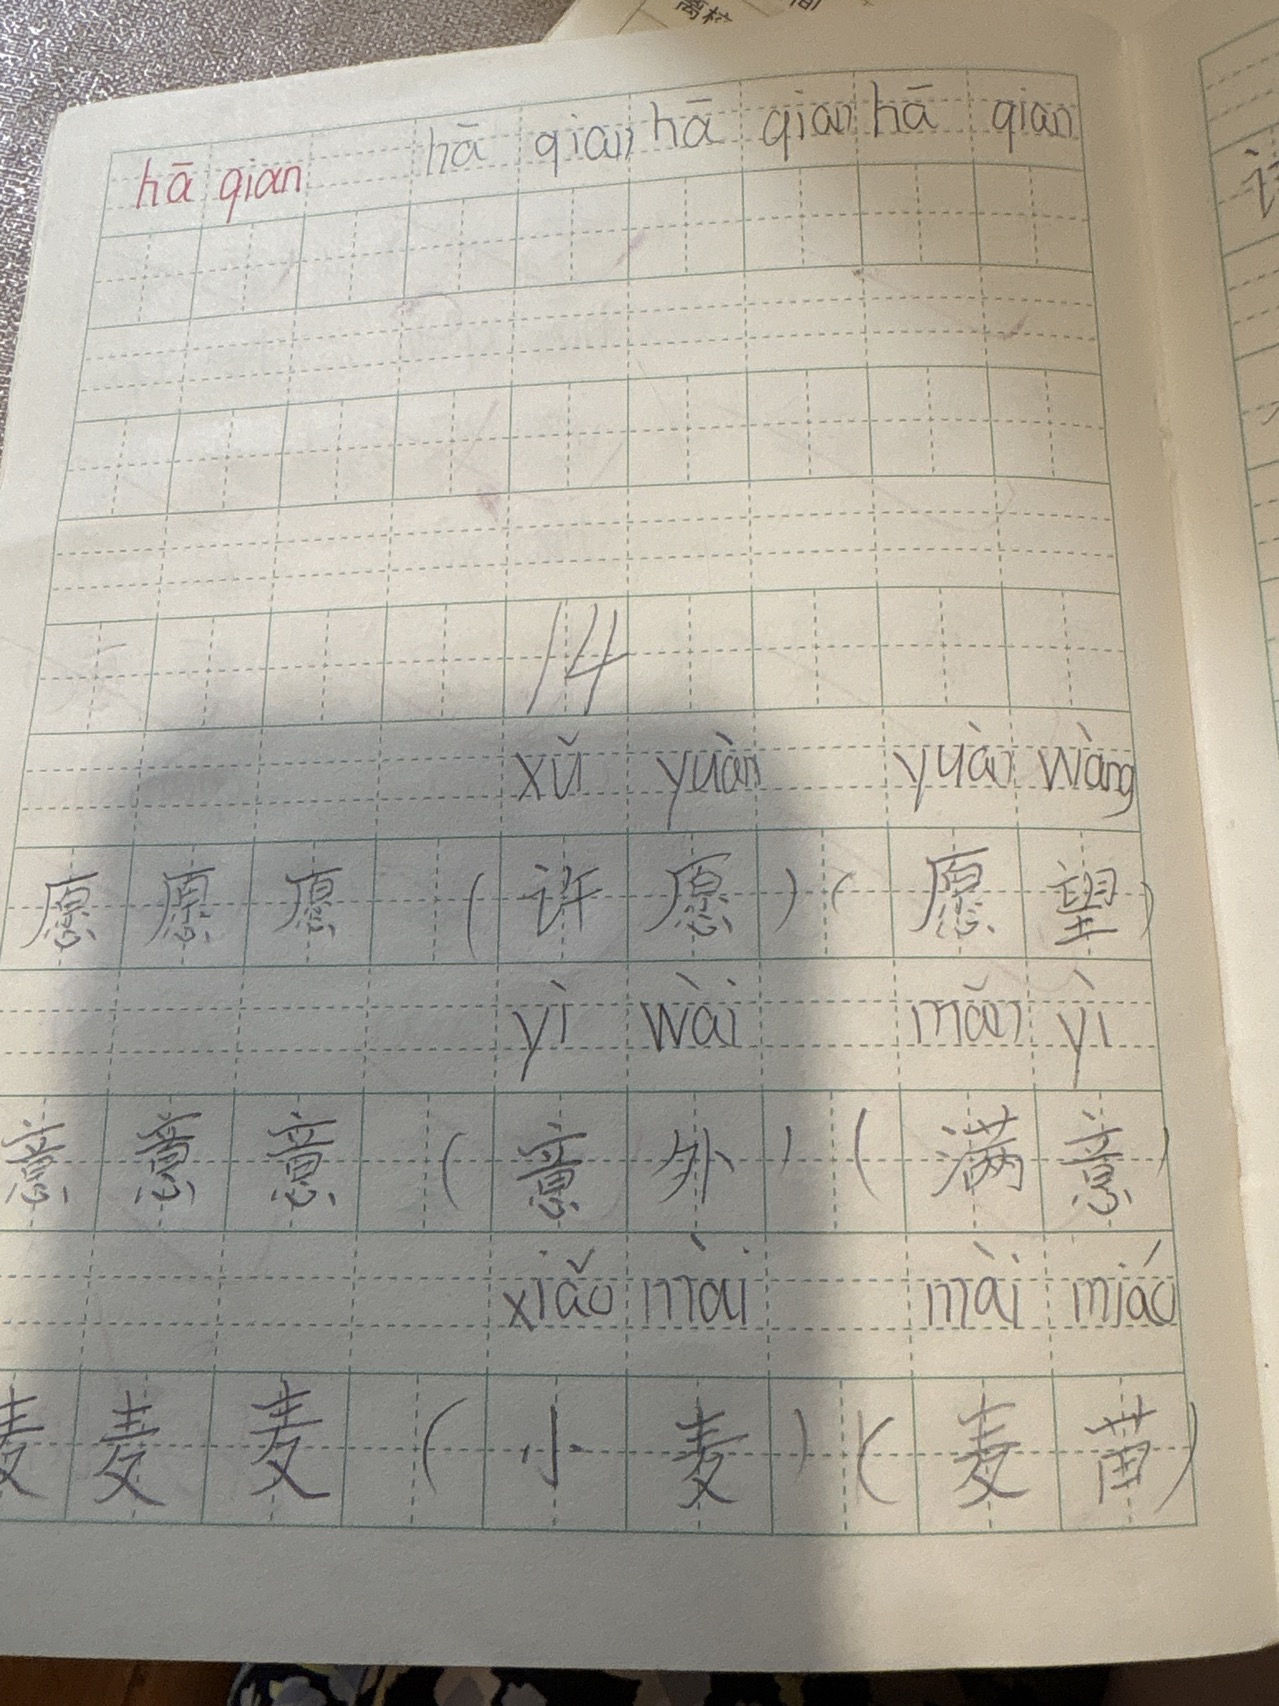 离 间
hā qian hā qian hā qian hā qian
14
xǔ yuàn yuàn wàng
愿 愿 愿 (许 愿) (愿 望)
yì wài mǎn yì
意 意 意 (意 外) (满 意)
xiǎo mài mài miáo
麦 麦 麦 (小 麦) (麦 苗)